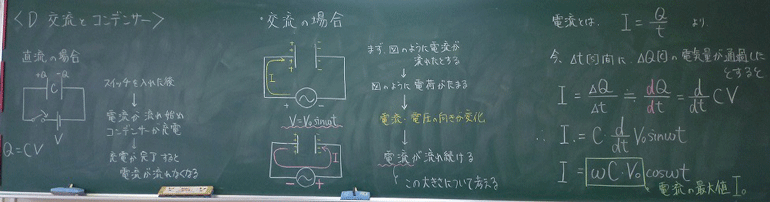 ＜D 交流とコンデンサー＞
直流の場合
+Q -Q
C
V
Q=CV
スイッチを入れた後
↓
電流が流れ始め
コンデンサーが充電
↓
充電が完了すると
電流が流れなくなる
・交流の場合
I
+ -
V=V₀sinωt
I
- +
まず、図のように電流が
流れたとする
↓
図のように電荷がたまる
↓
電流・電圧の向きが変化
↓
電流が流れ続ける
この大きさについて考える
電流とは、 I=Q/t より
今、Δt秒間に、ΔQ[C]の電気量が通過した
とすると
I=ΔQ/Δt≒dQ/dt=d/dt CV
∴ I=C・d/dt V₀sinωt
I=ωC・V₀cosωt
電流の最大値 I₀